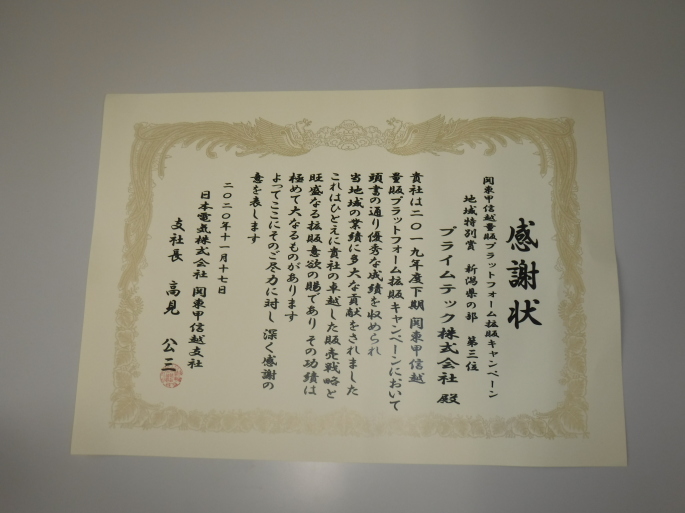 感謝状
関東甲信越量販プラットフォーム拡販キャンペーン
地域特別賞 新潟県の部 第三位
プライムテック株式会社 殿
貴社は二〇一九年度下期 関東甲信越
量販プラットフォーム拡販キャンペーンにおいて
頭書の通り優秀な成績を収められ
当地域の業績に多大な貢献をされました
これはひとえに貴社の卓越した販売戦略と
旺盛なる拡販意欲の賜であり その功績は
極めて大なるものがあります
よってここにそのご尽力に対し 深く感謝の
意を表します
二〇二〇年十一月十七日
日本電気株式会社 関東甲信越支社
支社長 高見 公三